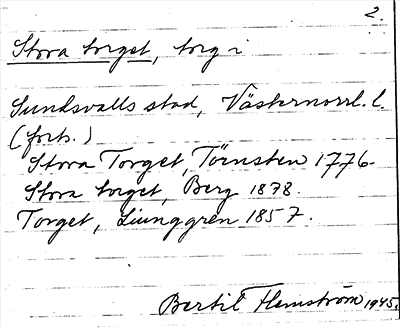 2.
Stora torget, torg i
Sundsvalls stad, Västernorrl. l.
(forts.)
Stora Torget, Törnsten 1776.
Stora torget, Berg 1878.
Torget, Ljunggren 1857.
Bertil Flemström 1945.